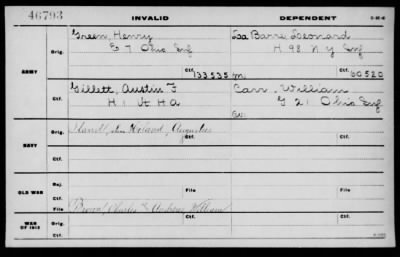 46793 INVALID DEPENDENT
Green, Henry La Barre Leonard
Orig. E 7 Ohio Inf Orig. H 98 N Y Inf
ARMY Ctf. 133535 m. Ctf. 60520
Gillett, Austin F Carr, William
H 1 Ct H A G 21 Ohio Inf
Ctf. Ctf.
Orig. Orig.
NAVY Ctf. Ctf.
Rej.
OLD WAR Ctf. File File
Brown, Charles & Andrew William
WAR OF 1812 Orig. Orig.
Ctf. Ctf.